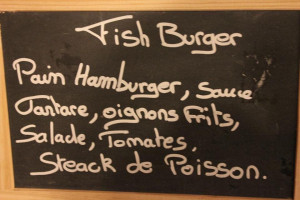 Fish Burger
Pain Hamburger, Sauce
Tartare, oignons Frits,
Salade, Tomates,
Steack de Poisson.